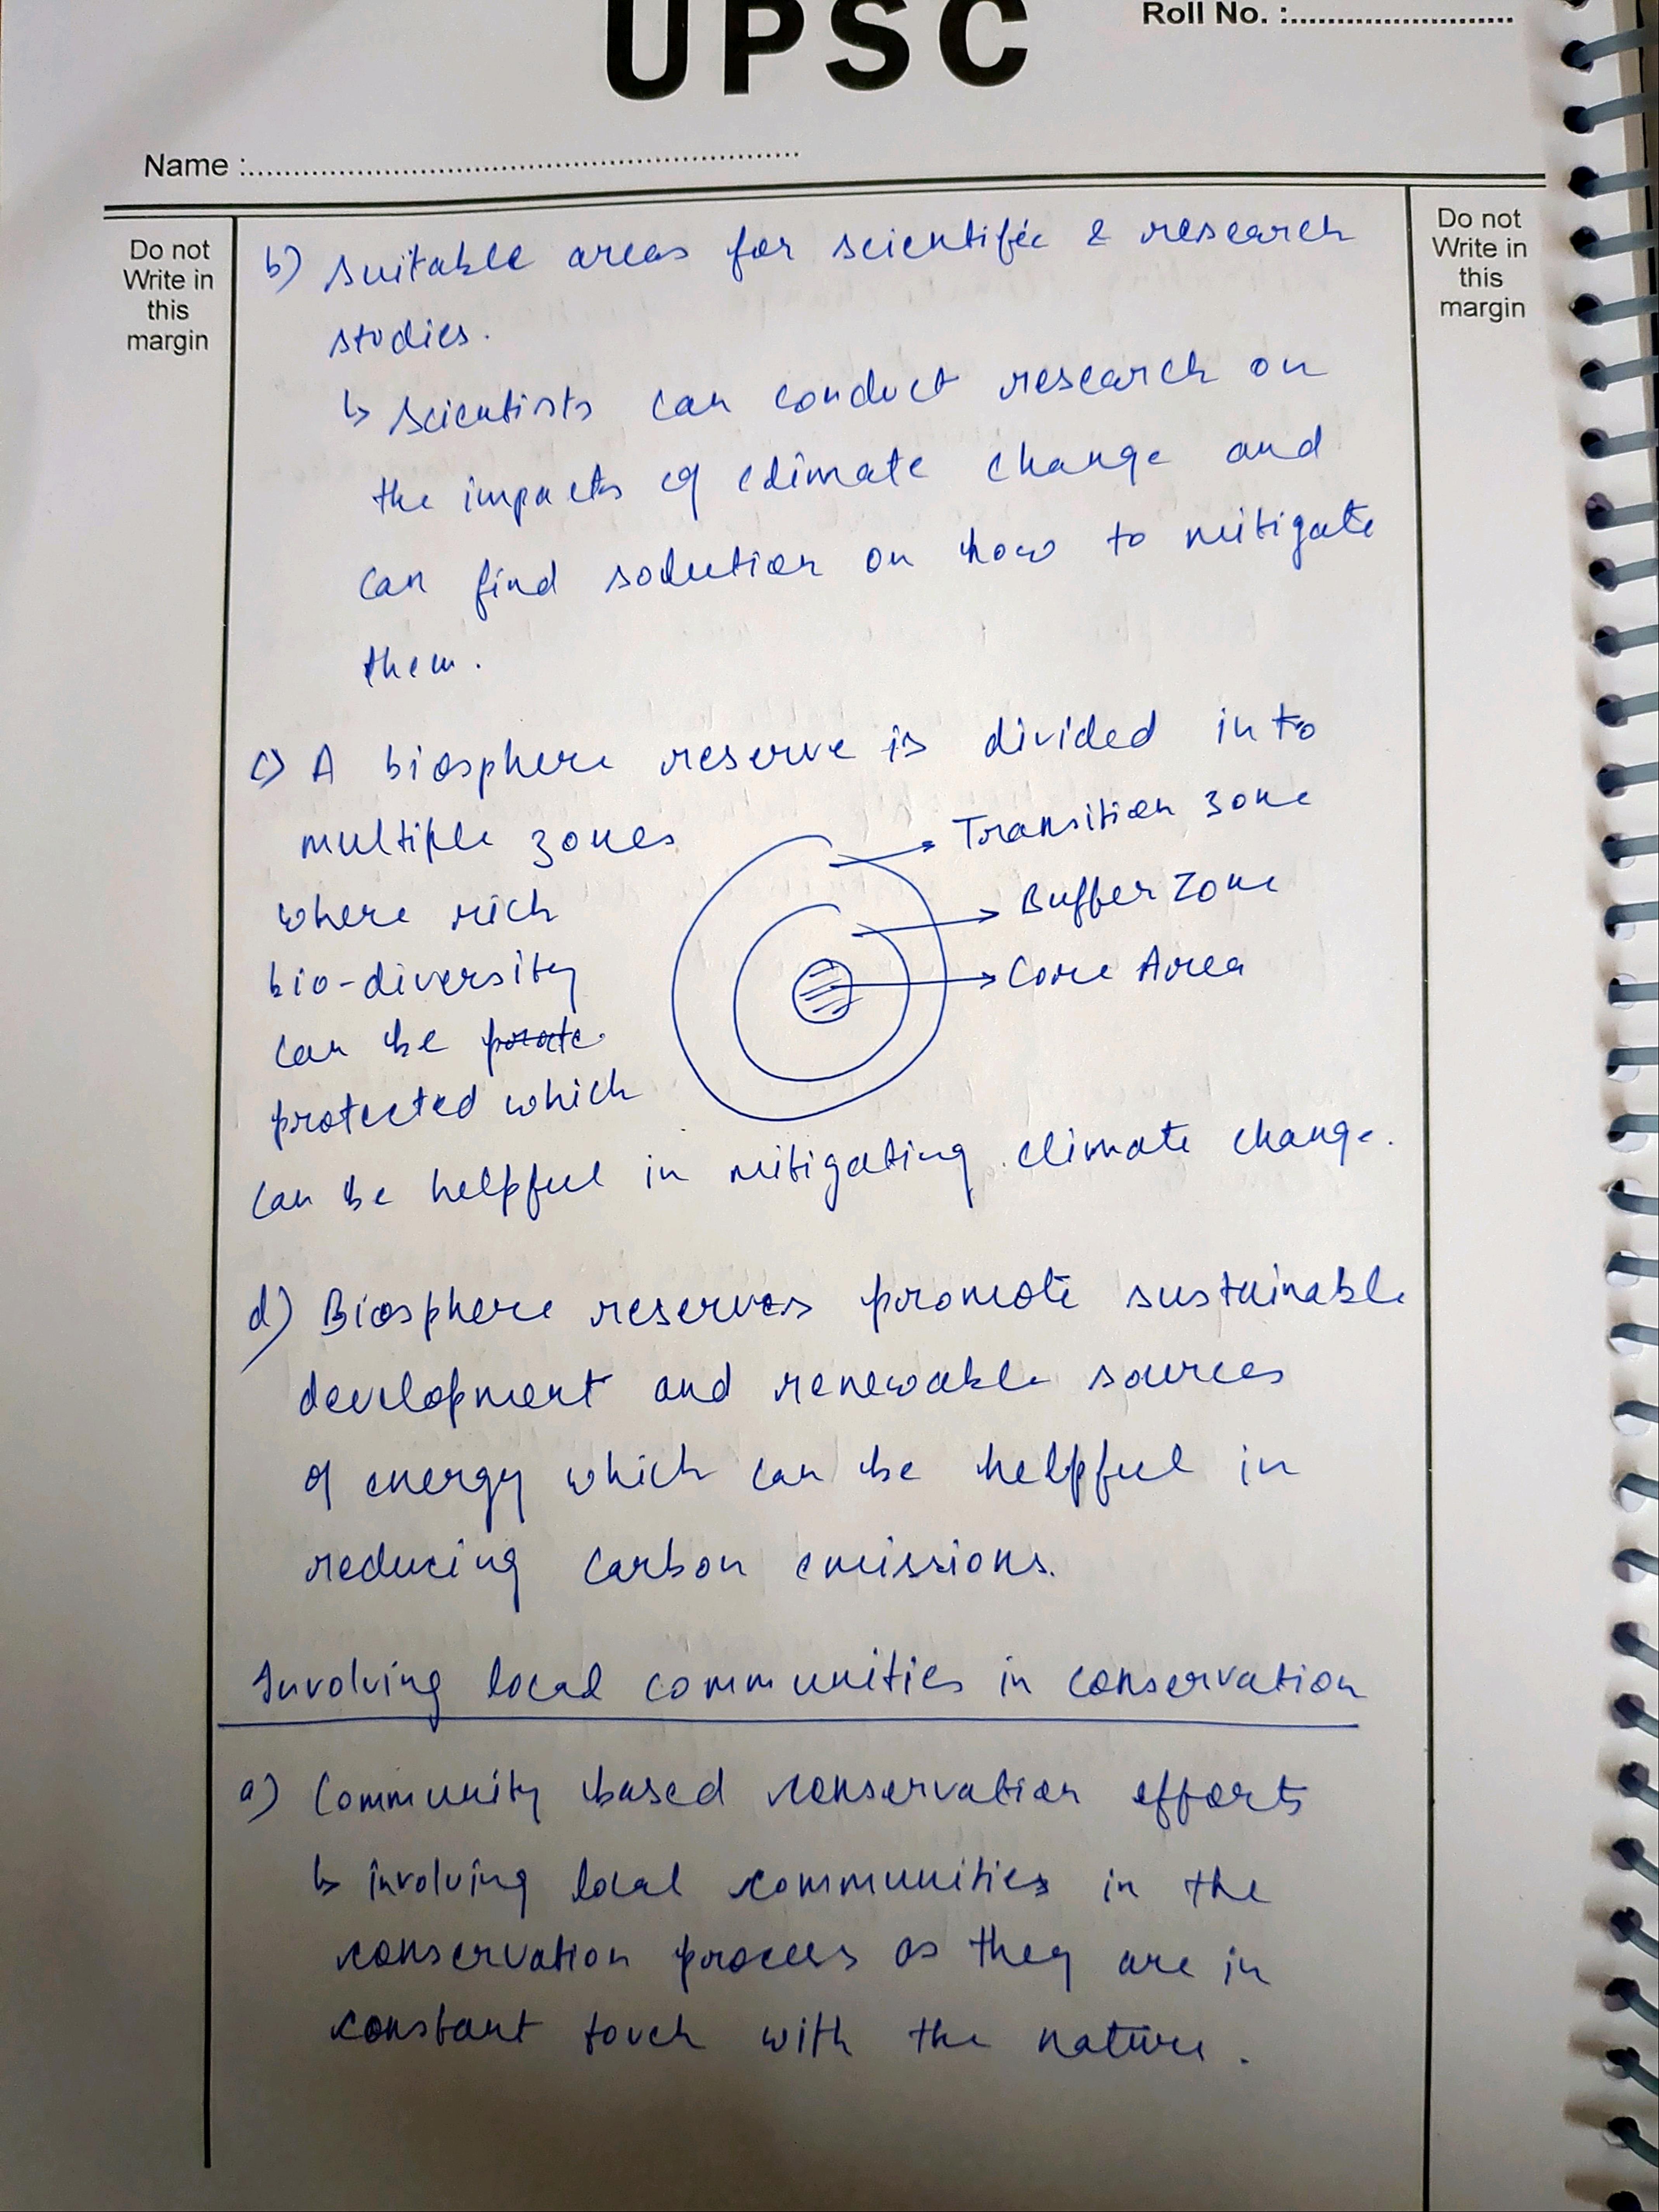 UPSC
Roll No. :
Name :
Do not
Write in
this
margin
Do not
Write in
this
margin
b) suitable areas for scientific & research
studies.
↳ scientists can conduct research on
the impacts of climate change and
can find solution on how to mitigate
them.
c) A biosphere reserve is divided into
multiple zones
where rich
bio-diversity
can be
protected which
can be helpful in mitigating climate change.
Transition zone
Buffer Zone
Core Area
d) Biosphere reserves promote sustainable
development and renewable sources
of energy which can be helpful in
reducing carbon emissions.
Involving local communities in conservation
a) Community based conservation efforts
↳ involving local communities in the
conservation process as they are in
constant touch with the nature.